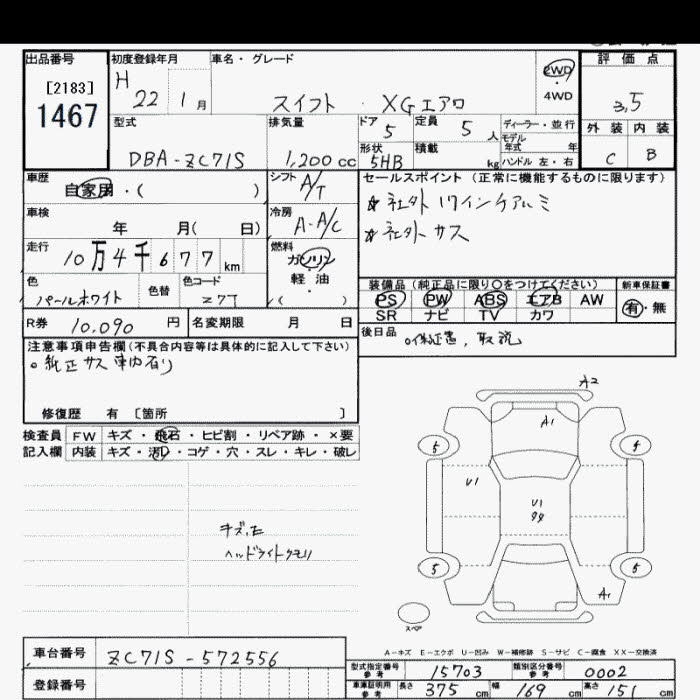 出品番号 初度登録年月 車名・グレード 2WD ・ 4WD 評価点
[2183] H 22 1月 スイフト XGエアロ 3.5
1467
型式 排気量 ドア 定員 ディーラー・並行 外装 内装
DBA-ZC71S 1,200cc 5 5人 モデル年式 年 C B
形状 積載 5HB kg ハンドル 左・右
車歴 自家用・( ) シフト A/T セールスポイント (正常に機能するものに限ります)
☆社外17インケアルミ
車検 年 月( 日) 冷房 A-A/C
☆社外サス
走行 10万4千677km 燃料 ガソリン ・ 軽油 ・( )
色 パールホワイト 色替 色コード Z7T
装備品(純正品に限り〇をつけてください) 新車保証書
PS PW ABS エアB AW 有・無
SR ナビ TV カワ
R券 10,090円 名変期限 月 日
後日品 ○保証書,取説
注意事項申告欄(不具合内容等は具体的に記入して下さい)
○純正サス車内有り
修復歴 有 [箇所 ]
検査員 FW キズ・飛石・ヒビ割・リペア跡・×要
記入欄 内装 キズ・汚れ・コゲ・穴・スレ・キレ・破レ
A2
A1
5 5
U1
U1
99
5 5
A1
スペア
キズ,エ
ヘッドライトクモリ
A-キズ E-エクボ U-凹み W-補修跡 S-サビ C-腐食 XX-交換済
車台番号 ZC71S-572556
型式指定番号 参考 15703 類別区分番号 参考 0002
登録番号
車庫証明用 参考 長さ 375cm 幅 169cm 高さ 151cm